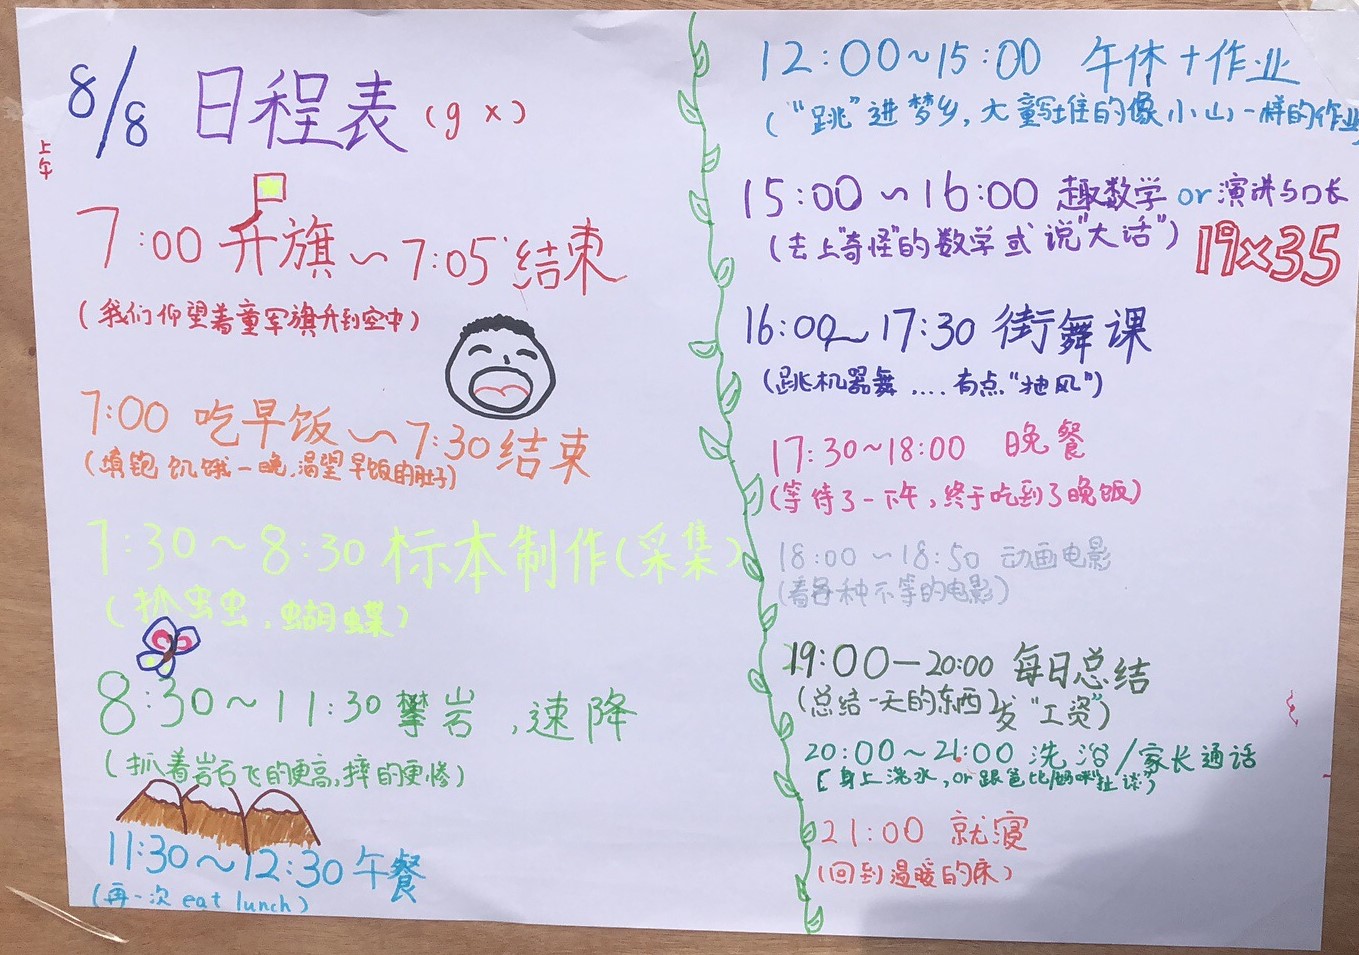 8/8 日程表(g x)
上午
7:00 升旗~7:05 结束
(我们仰望着童军旗升到空中)
7:00 吃早饭~7:30结束
(填饱饥饿一晚,渴望早饭的肚子)
7:30~8:30 标本制作(采集)
(抓虫虫,蝴蝶)
8:30~11:30 攀岩,速降
(抓着岩石飞的更高,摔的更惨)
11:30~12:30 午餐
(再一次 eat lunch)
12:00~15:00 午休+作业
("跳"进梦乡,大童写堆的像小山一样的作业
15:00~16:00 趣数学 or 演讲与口长
(去上"奇怪"的数学或说"大话")
19×35
16:00~17:30 街舞课
(跳机器舞....有点"抽风")
17:30~18:00 晚餐
(等待了一下午,终于吃到了晚饭)
18:00~18:50 动画电影
(看各种不等的电影)
19:00—20:00 每日总结
(总结一天的东西)发"工资")
20:00~21:00 洗浴/家长通话
[身上浇水,or跟爸比/妈咪"扯谈")
21:00 就寝
(回到温暖的床)